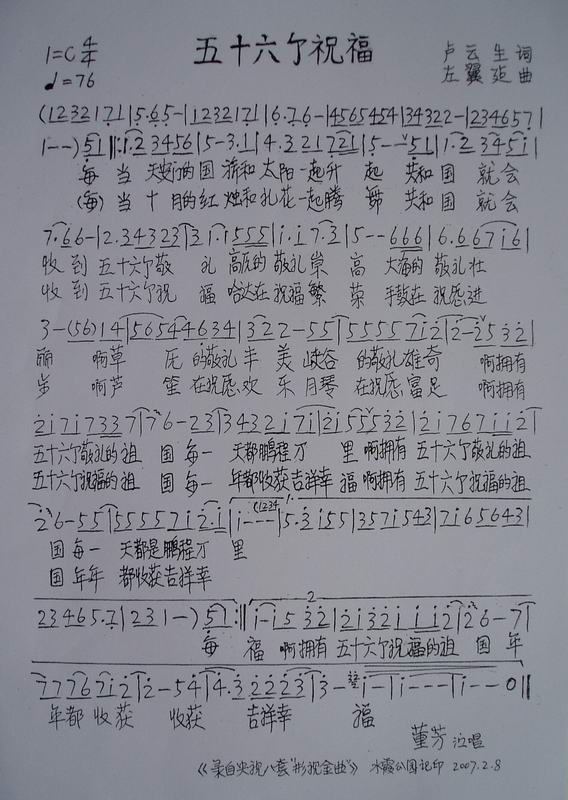 1=C 4/4 五十六个祝福 卢云生 词
♩=76 左翼建 曲
(1232171|5·65-|1232171|6·76-|45654 54|34322-|2346 57|
1--)51‖:1·23456|5-3·1|4·32 1721|5--51|1·23451|
每 当 天安门的国 旗和太阳一起升 起 共和国 就会
(每) 当 十月的红 烛和礼花一起腾 舞 共和国 就会
7·66-|2·343 23|31·1555|1·17·3|5--666|6·66716|
收到 五十六个敬 礼 高原的敬礼崇 高 大海的 敬礼壮
收到 五十六个祝 福 哈达在祝福繁 荣 手鼓在 祝愿进
3-(56)14|56544634|322-55|5555712|2-2532|
丽 啊草 原 的敬礼丰 美 峡谷 的敬礼雄奇 啊拥有
步 啊芦 笙 在祝愿欢 乐 月琴 在祝愿富足 啊拥有
2171733 7|76-23|343217 1|21555 32|2176711 2|
五十六个敬礼的祖 国 每一 天都鹏程万 里 啊拥有 五十六个敬礼的祖
五十六个祝福的祖 国 每一 年都收获吉祥幸 福 啊拥有 五十六个祝福的祖
26-55|55557 12·1|1---|5·3155|3571543|71656431|
国 每一 天都是鹏程万 里
国 年年 都收获吉祥幸
2346 5·7|231-)51:‖1-1532|21321112|26-7|
每 福 啊拥有 五十六个祝福的祖 国 年
7776712|2-54|4·32223|3-|1-|1---|1--0‖
年都 收获 收获 吉祥幸 福
董芳 演唱
《录自央视八套"影视金曲"》 水霞公园记印 2007.2.8